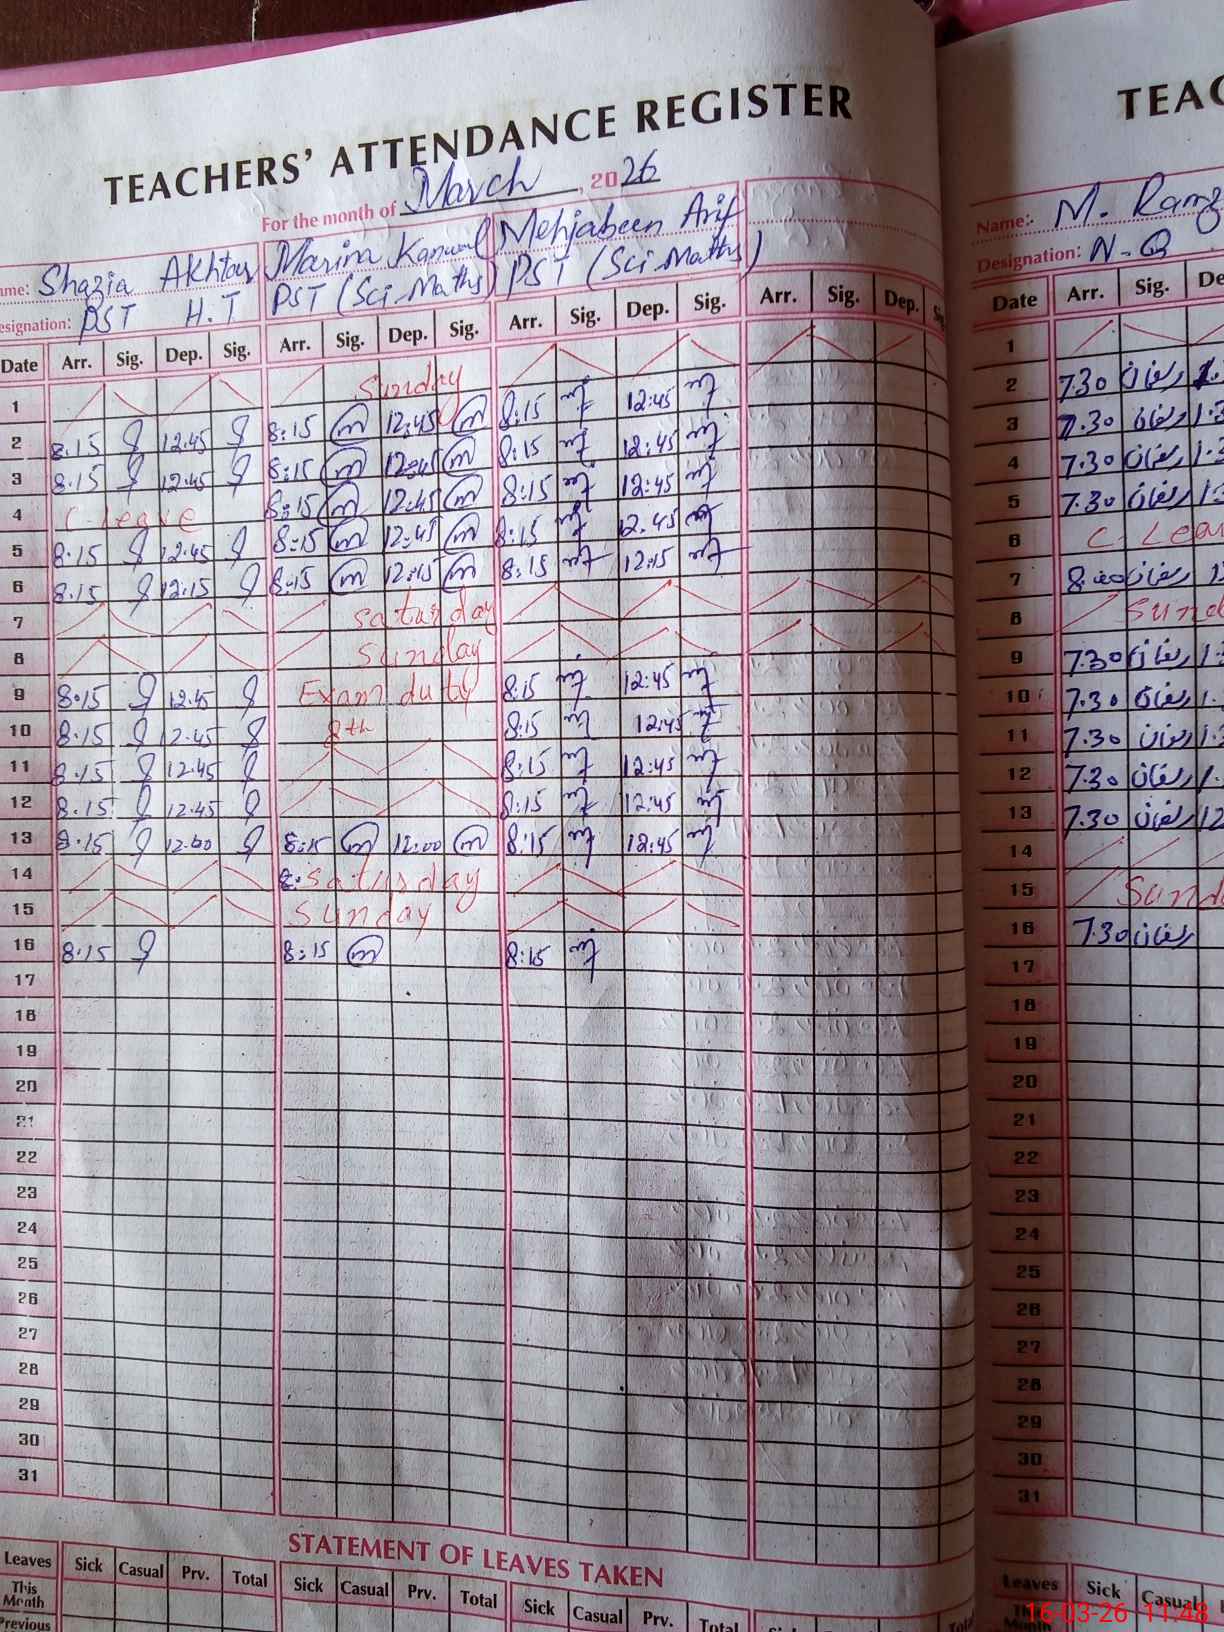 TEACHERS' ATTENDANCE REGISTER
For the month of March, 2026
me: Shazia Akhtar Marim Kanwal Mehjabeen Arif
esignation: PST H.T PST (Sci-Maths) PST (Sci-Maths)
Date Arr. Sig. Dep. Sig. Arr. Sig. Dep. Sig. Arr. Sig. Dep. Sig. Arr. Sig. Dep. Sig.
1 Sunday
2 8:15 12:45 8:15 m 12:45 m 8:15 12:45
3 8:15 12:45 8:15 m 12:45 m 8:15 12:45
4 C-leave 8:15 m 12:45 m 8:15 12:45
5 8:15 12:45 8:15 m 12:45 m 8:15 12:45
6 8:15 12:15 8:15 m 12:15 m 8:15 12:15
7 Saturday
8 Sunday
9 8:15 12:45 Exam duty 8:15 12:45
10 8:15 12:45 8th 8:15 12:45
11 8:15 12:45 8:15 12:45
12 8:15 12:45 8:15 12:45
13 8:15 12:00 8:15 m 12:00 m 8:15 12:45
14 8: Saturday
15 Sunday
16 8:15 8:15 m 8:15
17
18
19
20
21
22
23
24
25
26
27
28
29
30
31
STATEMENT OF LEAVES TAKEN
Leaves Sick Casual Prv. Total Sick Casual Prv. Total Sick Casual Prv. Total
This Month
Previous
TEAC
Name: M. Ramz
Designation: N-Q
Date Arr. Sig. De
1
2 7.30 رمضان
3 7.30 رمضان
4 7.30 رمضان
5 7.30 رمضان
6 C. Lea
7 8.00 رمضان
8 Sund
9 7.30 رمضان
10 7.30 رمضان
11 7.30 رمضان
12 7.30 رمضان
13 7.30 رمضان 12
14
15 Sund
16 7.30 رمضان
17
18
19
20
21
22
23
24
25
26
27
28
29
30
31
Leaves Sick Casual
16-03-26 11:48